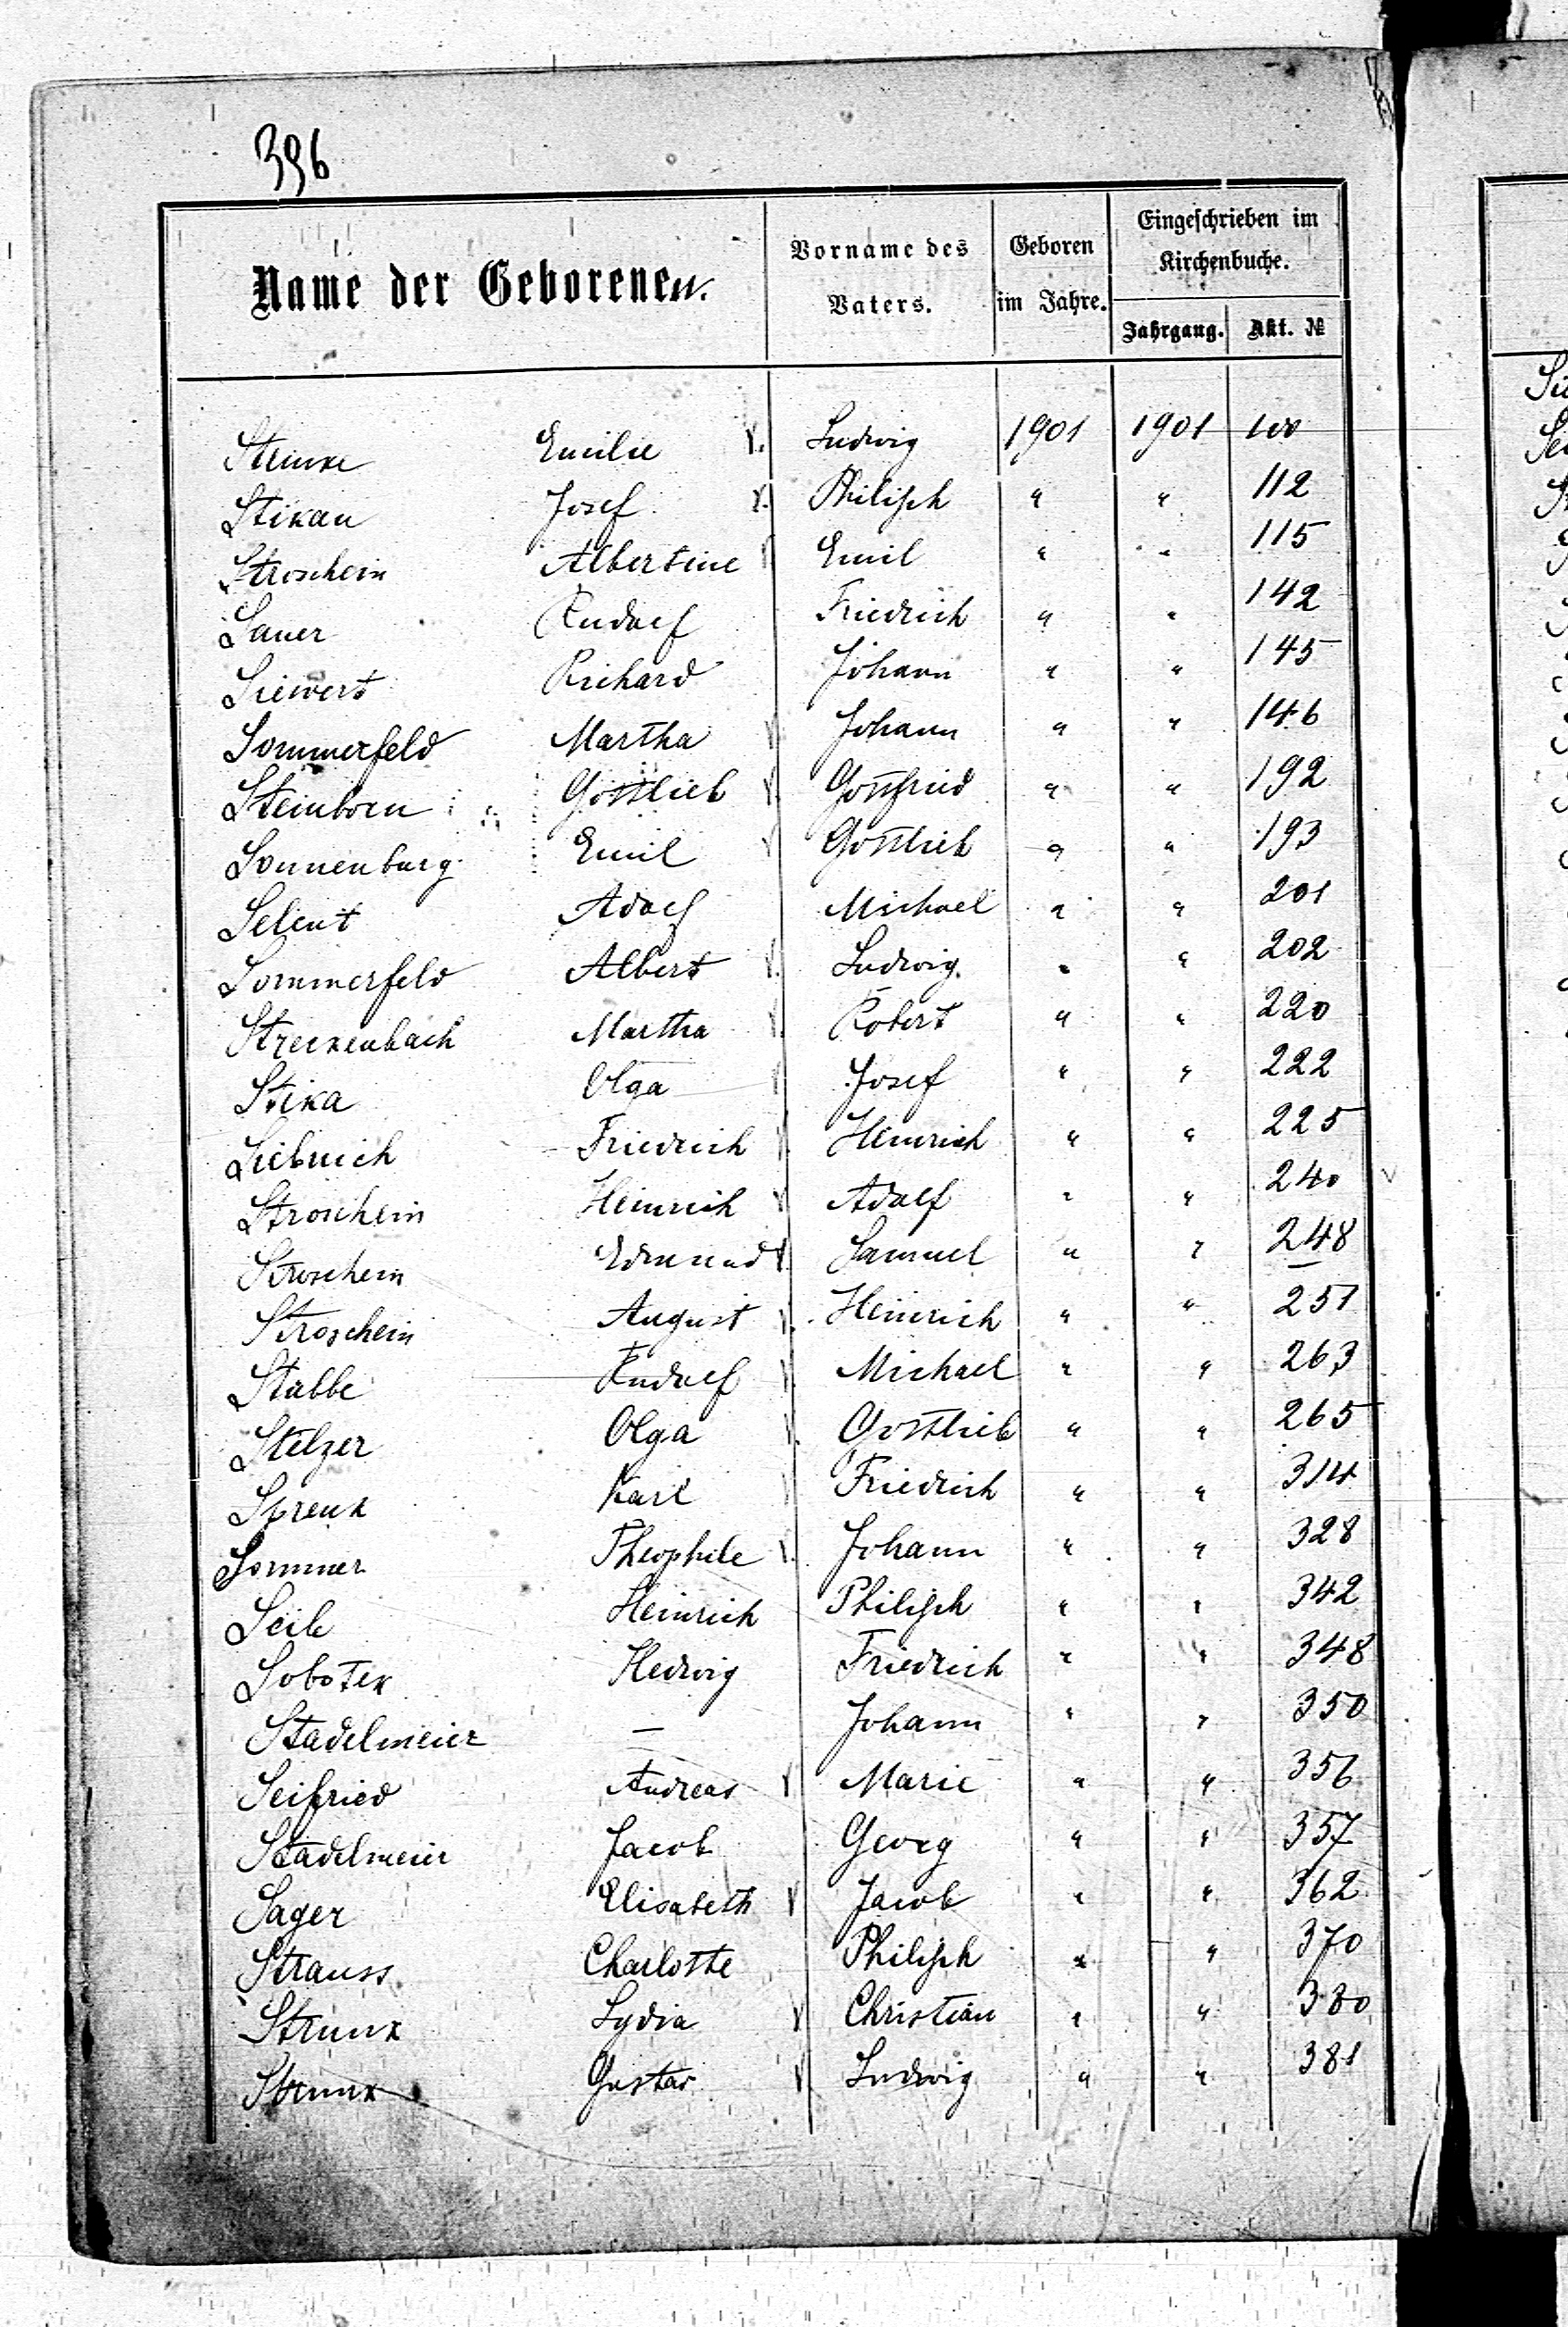 396
Name der Geborenen.
Vorname des Vaters.
Geboren im Jahre.
Eingeschrieben im Kirchenbuche.
Jahrgang. Akt. №
Steinke Emilie Ludwig 1901 1901 100
Stikau Josef Philipp " " 112
Stroschein Albertine Emil " " 115
Sauer Rudolf Friedrich " " 142
Siewert Richard Johann " " 145
Sommerfeld Martha Johann " " 146
Steinborn Gottlieb Gottfried " " 192
Sonnenburg Emil Gottlieb " " 193
Selent Adolf Michael " " 201
Sommerfeld Albert Ludwig " " 202
Streckenbach Martha Robert " " 220
Stika Olga Josef " " 222
Siebnich Friedrich Heinrich " " 225
Stroschein Heinrich Adolf " " 240
Stroschein Edmund Samuel " " 248
Stroschein August Heinrich " " 251
Stabbe Rudolf Michael " " 263
Stelzer Olga Gottlieb " " 265
Sprenk Karl Friedrich " " 314
Sommer Theophile Johann " " 328
Seib Heinrich Philipp " " 342
Sobotek Hedwig Friedrich " " 348
Stadelmeier — Johann " " 350
Seifried Andreas Marie " " 356
Stadelmeier Jacob Georg " " 357
Sager Elisabeth Jacob " " 362
Strauss Charlotte Philipp " " 370
Strunk Lydia Christian " " 380
Strunk Gustav Ludwig " " 381